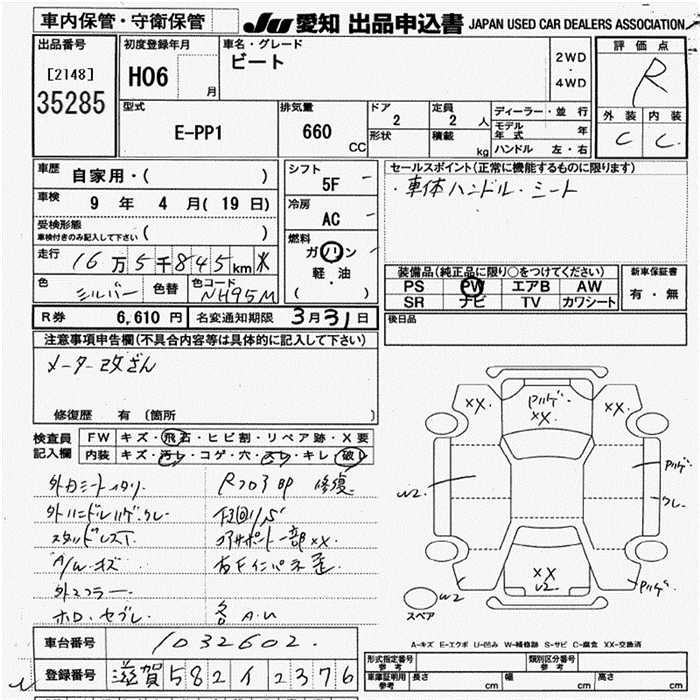 車内保管・守衛保管
JU 愛知 出品申込書 JAPAN USED CAR DEALERS ASSOCIATION
出品番号
[2148]
35285
初度登録年月
H06 月
車名・グレード
ビート
2WD
・
4WD
評価点
R
外装 内装
C C
型式
E-PP1
排気量
660 CC
ドア
2
形状
定員
2 人
積載 kg
ディーラー・並行
モデル年式 年
ハンドル 左・右
車歴
自家用・( )
車検
9 年 4 月( 19 日)
受検形態
車検付きのみ記入して下さい ( )
走行
16万5千845km
色
シルバー
色替
色コード
NH95M
シフト
5F
冷房
AC
燃料
ガソリン
軽・油
( )
セールスポイント(正常に機能するものに限ります)
・車体ハンドル・シート
装備品(純正品に限り○をつけてください)
PS PW エアB AW
SR ナビ TV カワシート
新車保証書
有・無
R券 6,610 円 名変通知期限 3月31日
後日品
注意事項申告欄(不具合内容等は具体的に記入して下さい)
メーター改ざん
修復歴 有 〔箇所 〕
検査員記入欄
FW キズ・飛石・ヒビ割・リペア跡・X要
内装 キズ・汚レ・コゲ・穴・スレ・キレ・破レ
スタッドレス
A/W キズ
修復
XX. XX XX.
W2
XX
W2
W2
スペア
A-キズ E-エクボ U-凹み W-補修跡 S-サビ C-腐食 XX-交換済
車台番号 1032602.
登録番号 滋賀 582 イ 2376
形式指定番号 参考
類別区分番号 参考
車庫証明用 参考
長さ cm 幅 cm 高さ cm